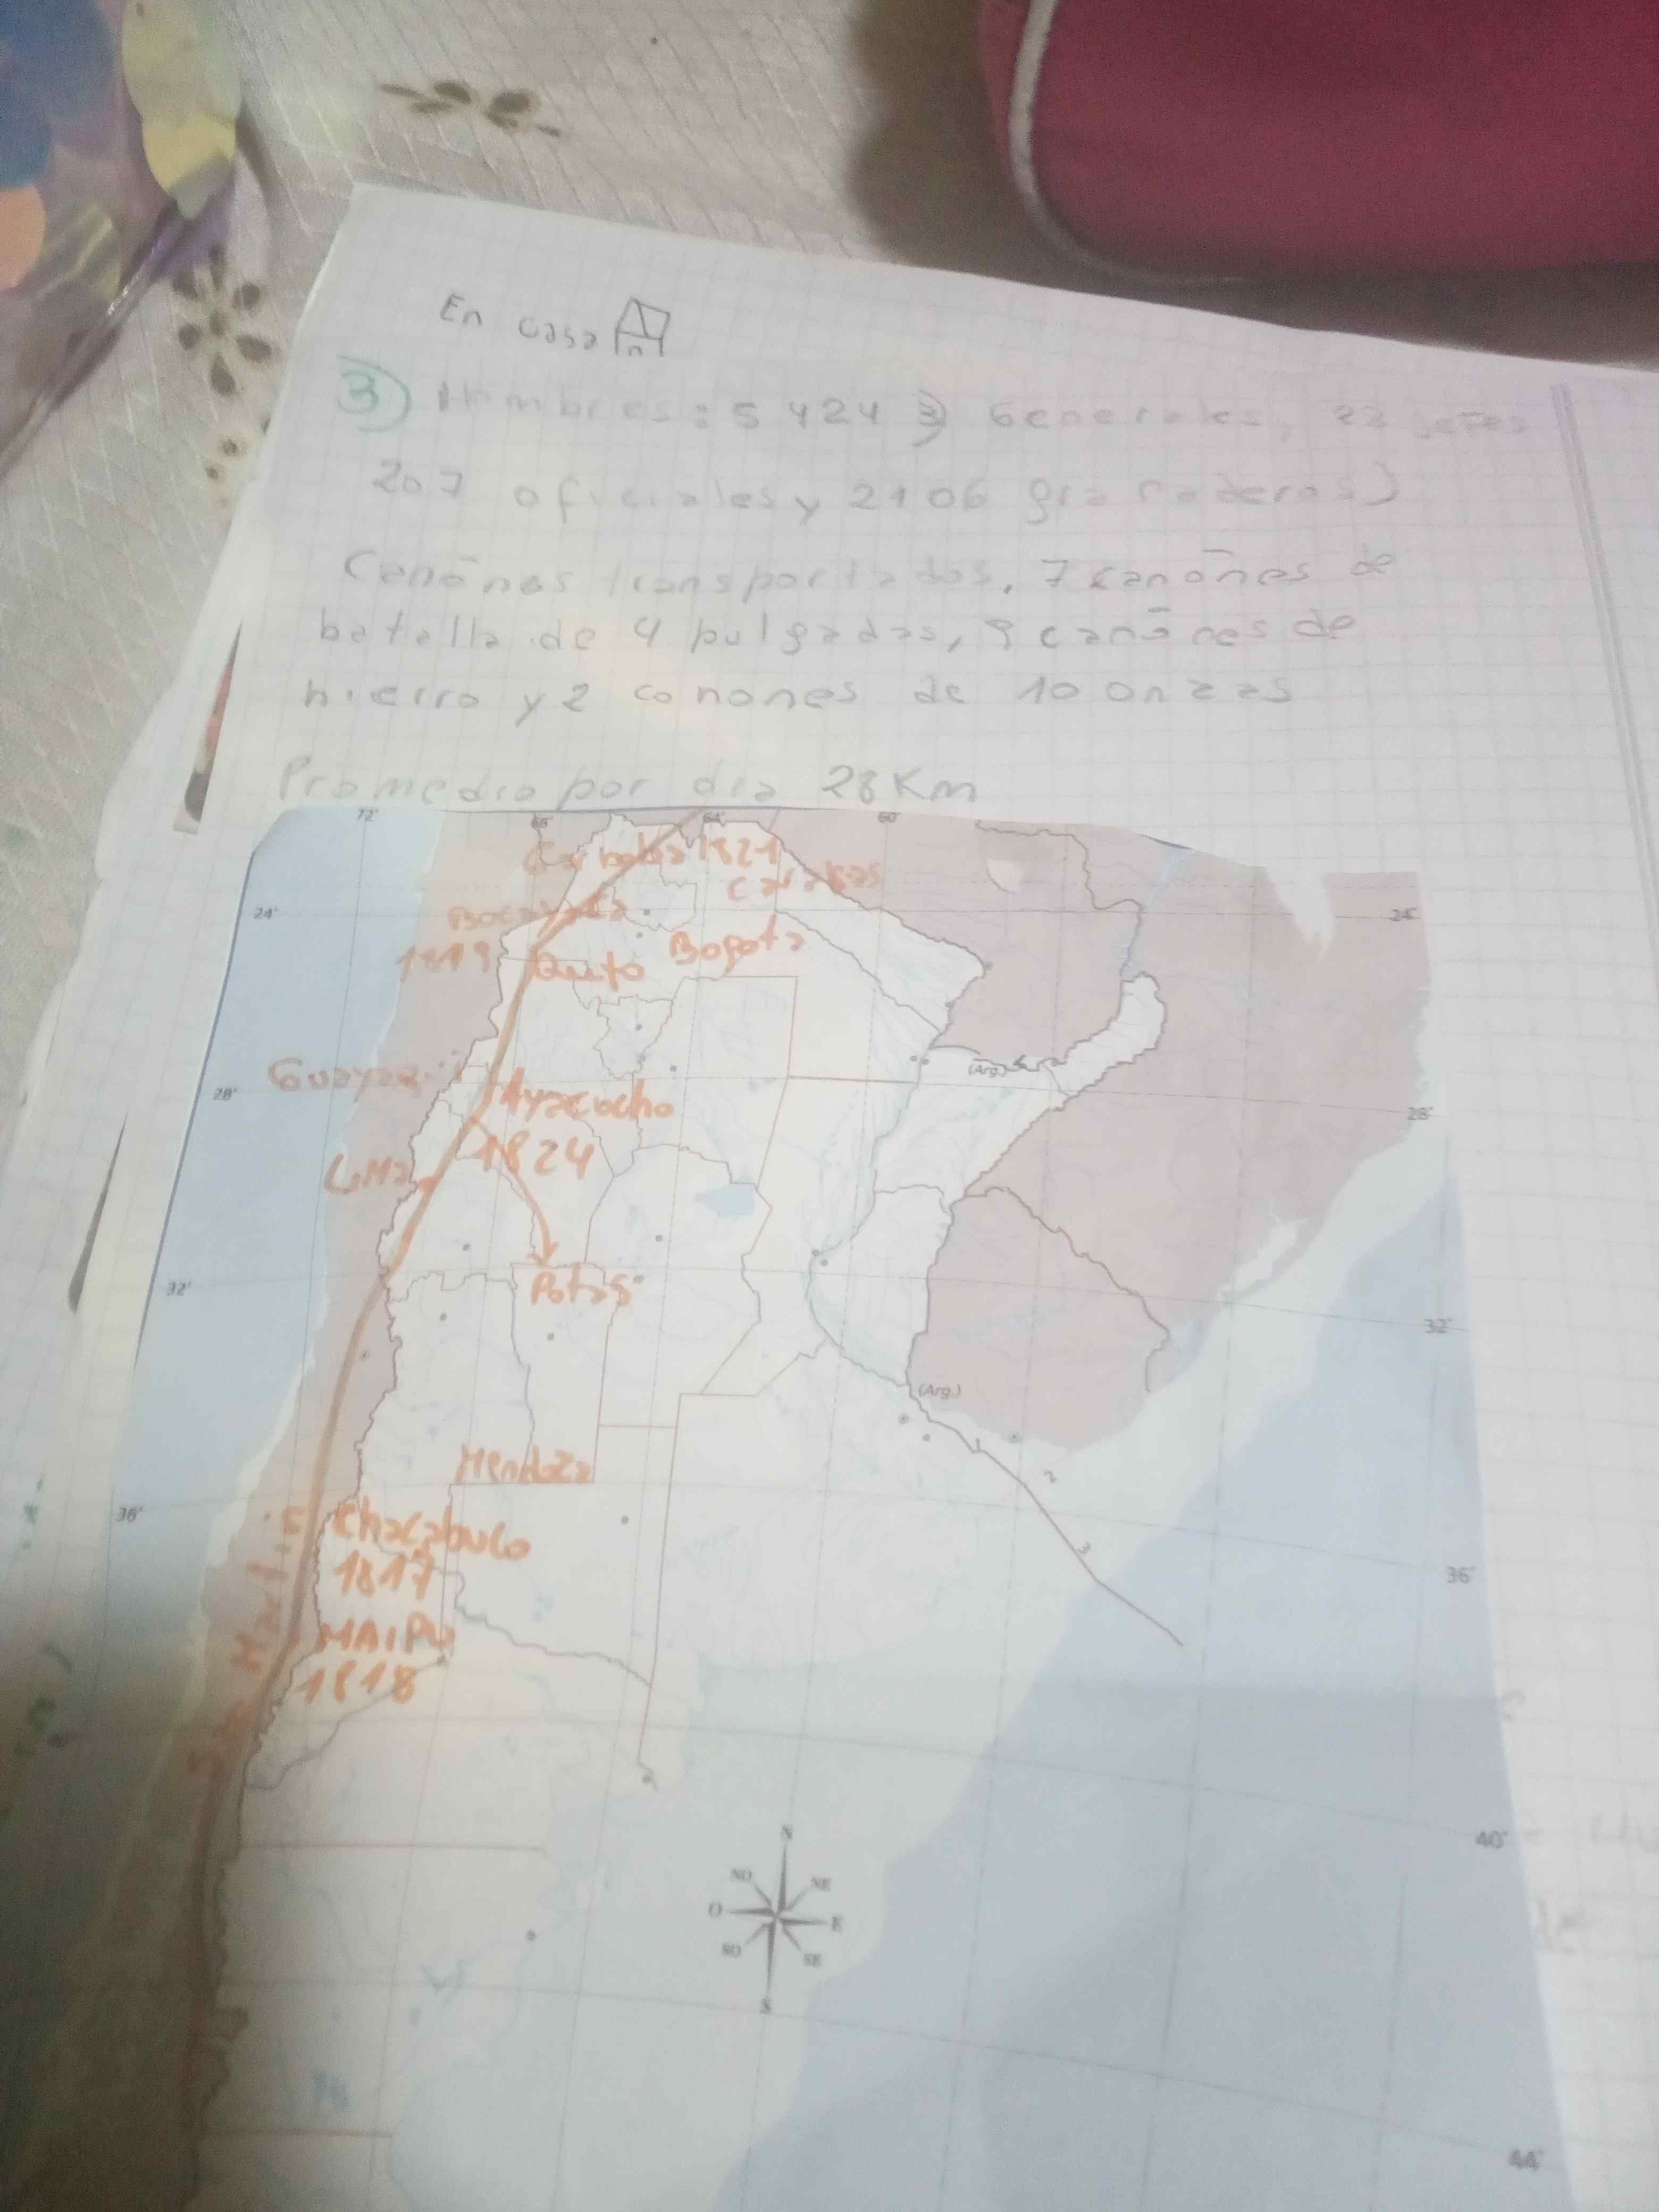 En casa
3) Hombres: 5424 3) Generales, 28 Jefes
207 oficiales y 2106 granaderos)
Cenónes transportados, 7 canónes de
batalla de 4 pulgadas, 9 canónes de
hierro y 2 conones de 10 onzas
Promedio por dia 28 Km
72° 68° 64° 60°
Carabobo 1821
Caracas
24° 24°
Bocayata
Bogota
1819
Quito
Guayaquil
28° 28°
(Arg.)
Ayacucho
1824
LIMa
32° 32°
Potas
(Arg.)
Mendoza
2
3
36° 36°
Chacabuco
1817
MAIPU
1818
San Martin
40°
N
NO NE
O E
SO SE
S
44°